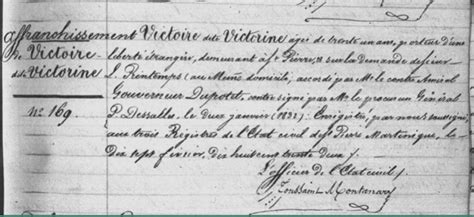 affranchissement Victoire dite Victorine agée de trente un ans, porteur d'une
De Victoire
dite Victorine
No 169
liberté étrangère, demeurant à St Pierre, sur la demande du sieur
J. Printemps (au même domicile, accordé par Mr le contre Amiral
Gouverneur Dupotet, contre signé par Mr le procureur Général
P. Dessalles, le deux janvier (1832). Enregistré, par nous soussigné,
aux trois Registre de l'Etat civil de St Pierre Martinique, le
Dix sept février, dix huit cent trente deux.
L'officier de l'Etat civil
Toussaint Montanary